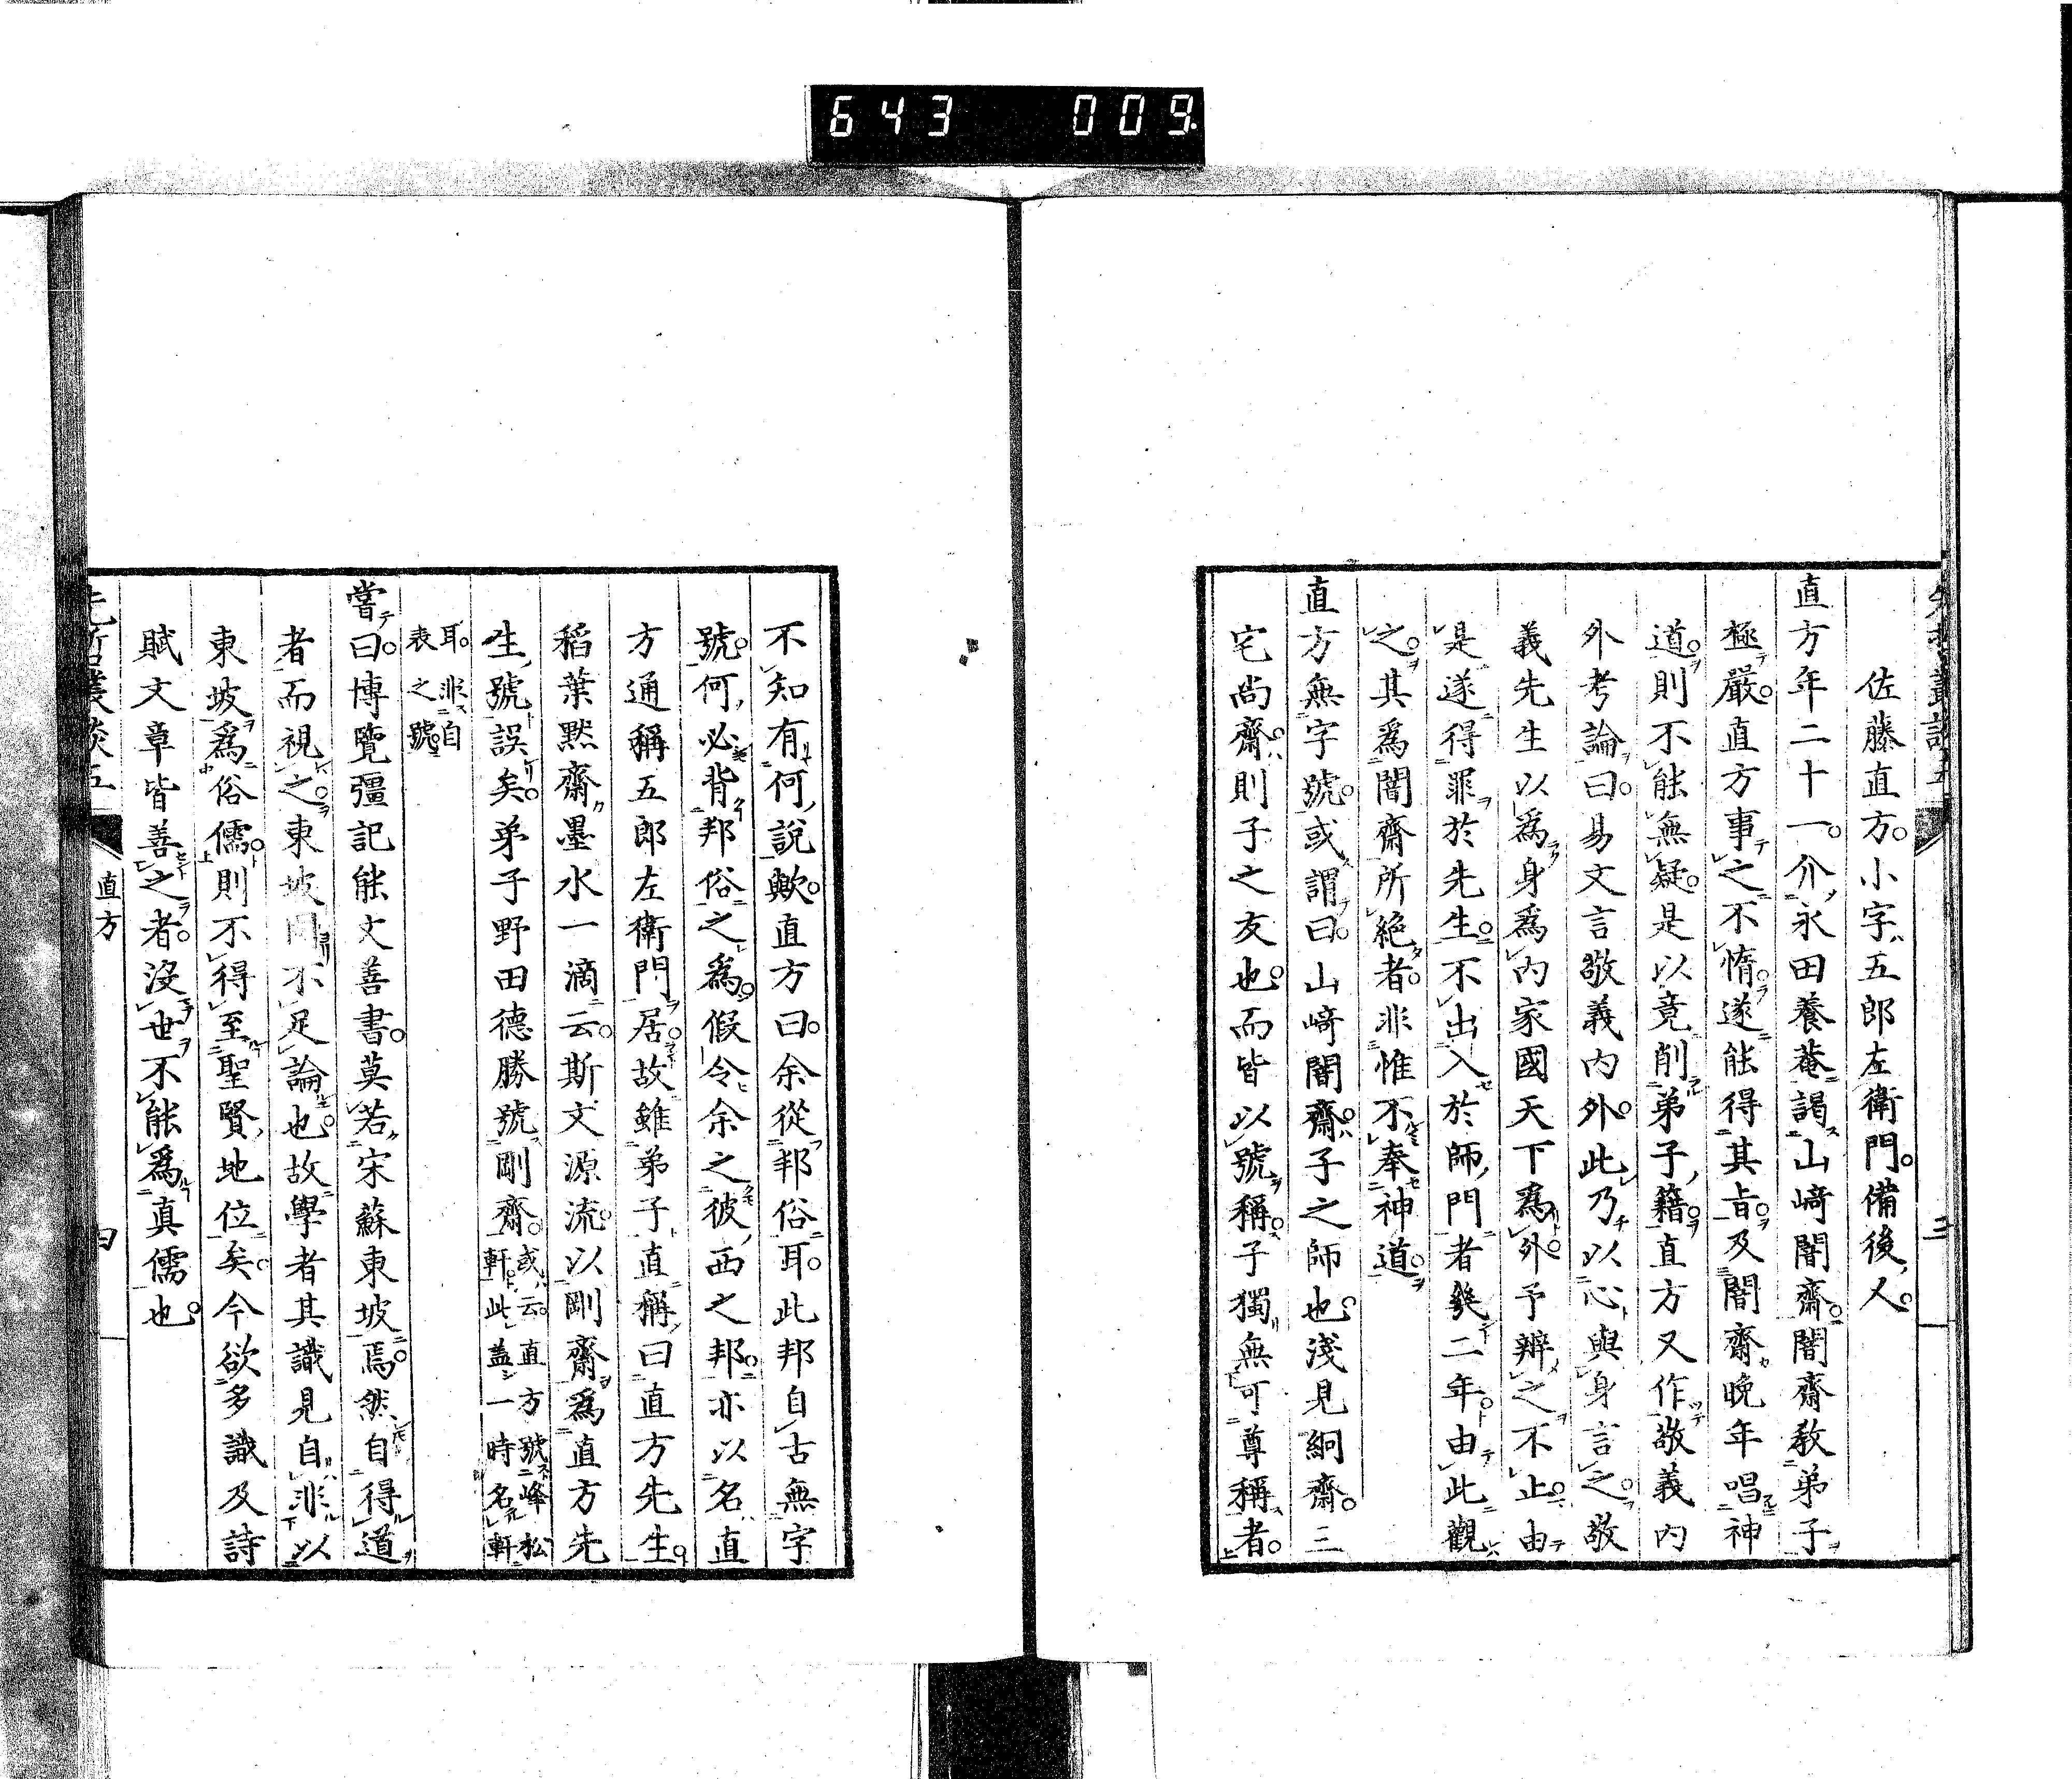 643 009
佐藤直方。小字五郎左衛門。備後人。
直方年二十一。介永田養菴謁山﨑闇齋。闇齋教弟子
極嚴。直方事之不惰。遂能得其旨。及闇齋晚年唱神
道。則不能無疑。是以竟削弟子籍。直方又作敬義內
外考論。曰。易文言敬義內外。此乃以心與身言之。敬
義先生以爲身爲內家國天下爲外。予辨之不止。由
是遂得罪於先生。不出入於師門者幾二年。由此觀
之。其爲闇齋所絕者。非惟不奉神道。
直方無字號。或謂曰。山﨑闇齋。子之師也。淺見絅齋。三
宅尚齋。則子之友也。而皆以號稱。子獨無可尊稱者。
不知有何說歟。直方曰。余從邦俗耳。此邦自古無字
號。何必背邦俗之爲。假令余之彼西之邦。亦以名直
方通稱五郎左衛門居。故雖弟子直稱曰直方先生。
稻葉默齋墨水一滴云。斯文源流。以剛齋爲直方先
生號誤矣。弟子野田德勝號剛齋。或云。直方號峰松
軒。此蓋一時名軒
耳。非自
表之號
嘗曰。博覽彊記能文善書。莫若宋蘇東坡焉。然自得道
者而視之。東坡固不足論也。故學者其識見自非以
東坡爲俗儒。則不得至聖賢地位矣。今欲多識及詩
賦文章皆善之者。沒世不能爲真儒也。
直方